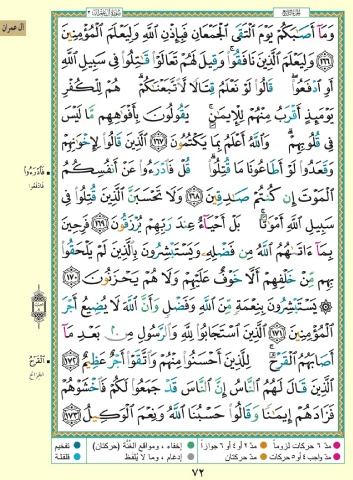 آل عمران
سُورَةُ آلِ عِمْرَان ٣
الجُزْءُ الرَّابِعُ
وَمَآ أَصَٰبَكُمْ يَوْمَ ٱلْتَقَى ٱلْجَمْعَانِ فَبِإِذْنِ ٱللَّهِ وَلِيَعْلَمَ ٱلْمُؤْمِنِينَ
﴿١٦٦﴾ وَلِيَعْلَمَ ٱلَّذِينَ نَافَقُوا۟ ۚ وَقِيلَ لَهُمْ تَعَالَوْا۟ قَٰتِلُوا۟ فِى سَبِيلِ ٱللَّهِ
أَوِ ٱدْفَعُوا۟ ۖ قَالُوا۟ لَوْ نَعْلَمُ قِتَالًا لَّٱتَّبَعْنَٰكُمْ ۗ هُمْ لِلْكُفْرِ
يَوْمَئِذٍ أَقْرَبُ مِنْهُمْ لِلْإِيمَٰنِ ۚ يَقُولُونَ بِأَفْوَٰهِهِم مَّا لَيْسَ
فِى قُلُوبِهِمْ ۗ وَٱللَّهُ أَعْلَمُ بِمَا يَكْتُمُونَ ﴿١٦٧﴾ ٱلَّذِينَ قَالُوا۟ لِإِخْوَٰنِهِمْ
وَقَعَدُوا۟ لَوْ أَطَاعُونَا مَا قُتِلُوا۟ ۗ قُلْ فَٱدْرَءُوا۟ عَنْ أَنفُسِكُمُ
ٱلْمَوْتَ إِن كُنتُمْ صَٰدِقِينَ ﴿١٦٨﴾ وَلَا تَحْسَبَنَّ ٱلَّذِينَ قُتِلُوا۟ فِى
سَبِيلِ ٱللَّهِ أَمْوَٰتًۢا ۚ بَلْ أَحْيَآءٌ عِندَ رَبِّهِمْ يُرْزَقُونَ ﴿١٦٩﴾ فَرِحِينَ
بِمَآ ءَاتَىٰهُمُ ٱللَّهُ مِن فَضْلِهِۦ وَيَسْتَبْشِرُونَ بِٱلَّذِينَ لَمْ يَلْحَقُوا۟
بِهِم مِّنْ خَلْفِهِمْ أَلَّا خَوْفٌ عَلَيْهِمْ وَلَا هُمْ يَحْزَنُونَ ﴿١٧٠﴾
۞ يَسْتَبْشِرُونَ بِنِعْمَةٍ مِّنَ ٱللَّهِ وَفَضْلٍ وَأَنَّ ٱللَّهَ لَا يُضِيعُ أَجْرَ
ٱلْمُؤْمِنِينَ ﴿١٧١﴾ ٱلَّذِينَ ٱسْتَجَابُوا۟ لِلَّهِ وَٱلرَّسُولِ مِنۢ بَعْدِ مَآ
أَصَابَهُمُ ٱلْقَرْحُ ۚ لِلَّذِينَ أَحْسَنُوا۟ مِنْهُمْ وَٱتَّقَوْا۟ أَجْرٌ عَظِيمٌ ﴿١٧٢﴾
ٱلَّذِينَ قَالَ لَهُمُ ٱلنَّاسُ إِنَّ ٱلنَّاسَ قَدْ جَمَعُوا۟ لَكُمْ فَٱخْشَوْهُمْ
فَزَادَهُمْ إِيمَٰنًا وَقَالُوا۟ حَسْبُنَا ٱللَّهُ وَنِعْمَ ٱلْوَكِيلُ ﴿١٧٣﴾
فَٱدْرَءُوا۟
فادفعوا
ٱلْقَرْحُ
الجراح
مدّ ٦ حركات لزوماً
مدّ ٢ أو ٤ أو ٦ جوازاً
إخفاء، ومواقع الغنّة (حركتان)
تفخيم
مدّ واجب ٤ أو ٥ حركات
مدّ حركتان
إدغام، وما لا يُلفظ
قلقلة
٧٢